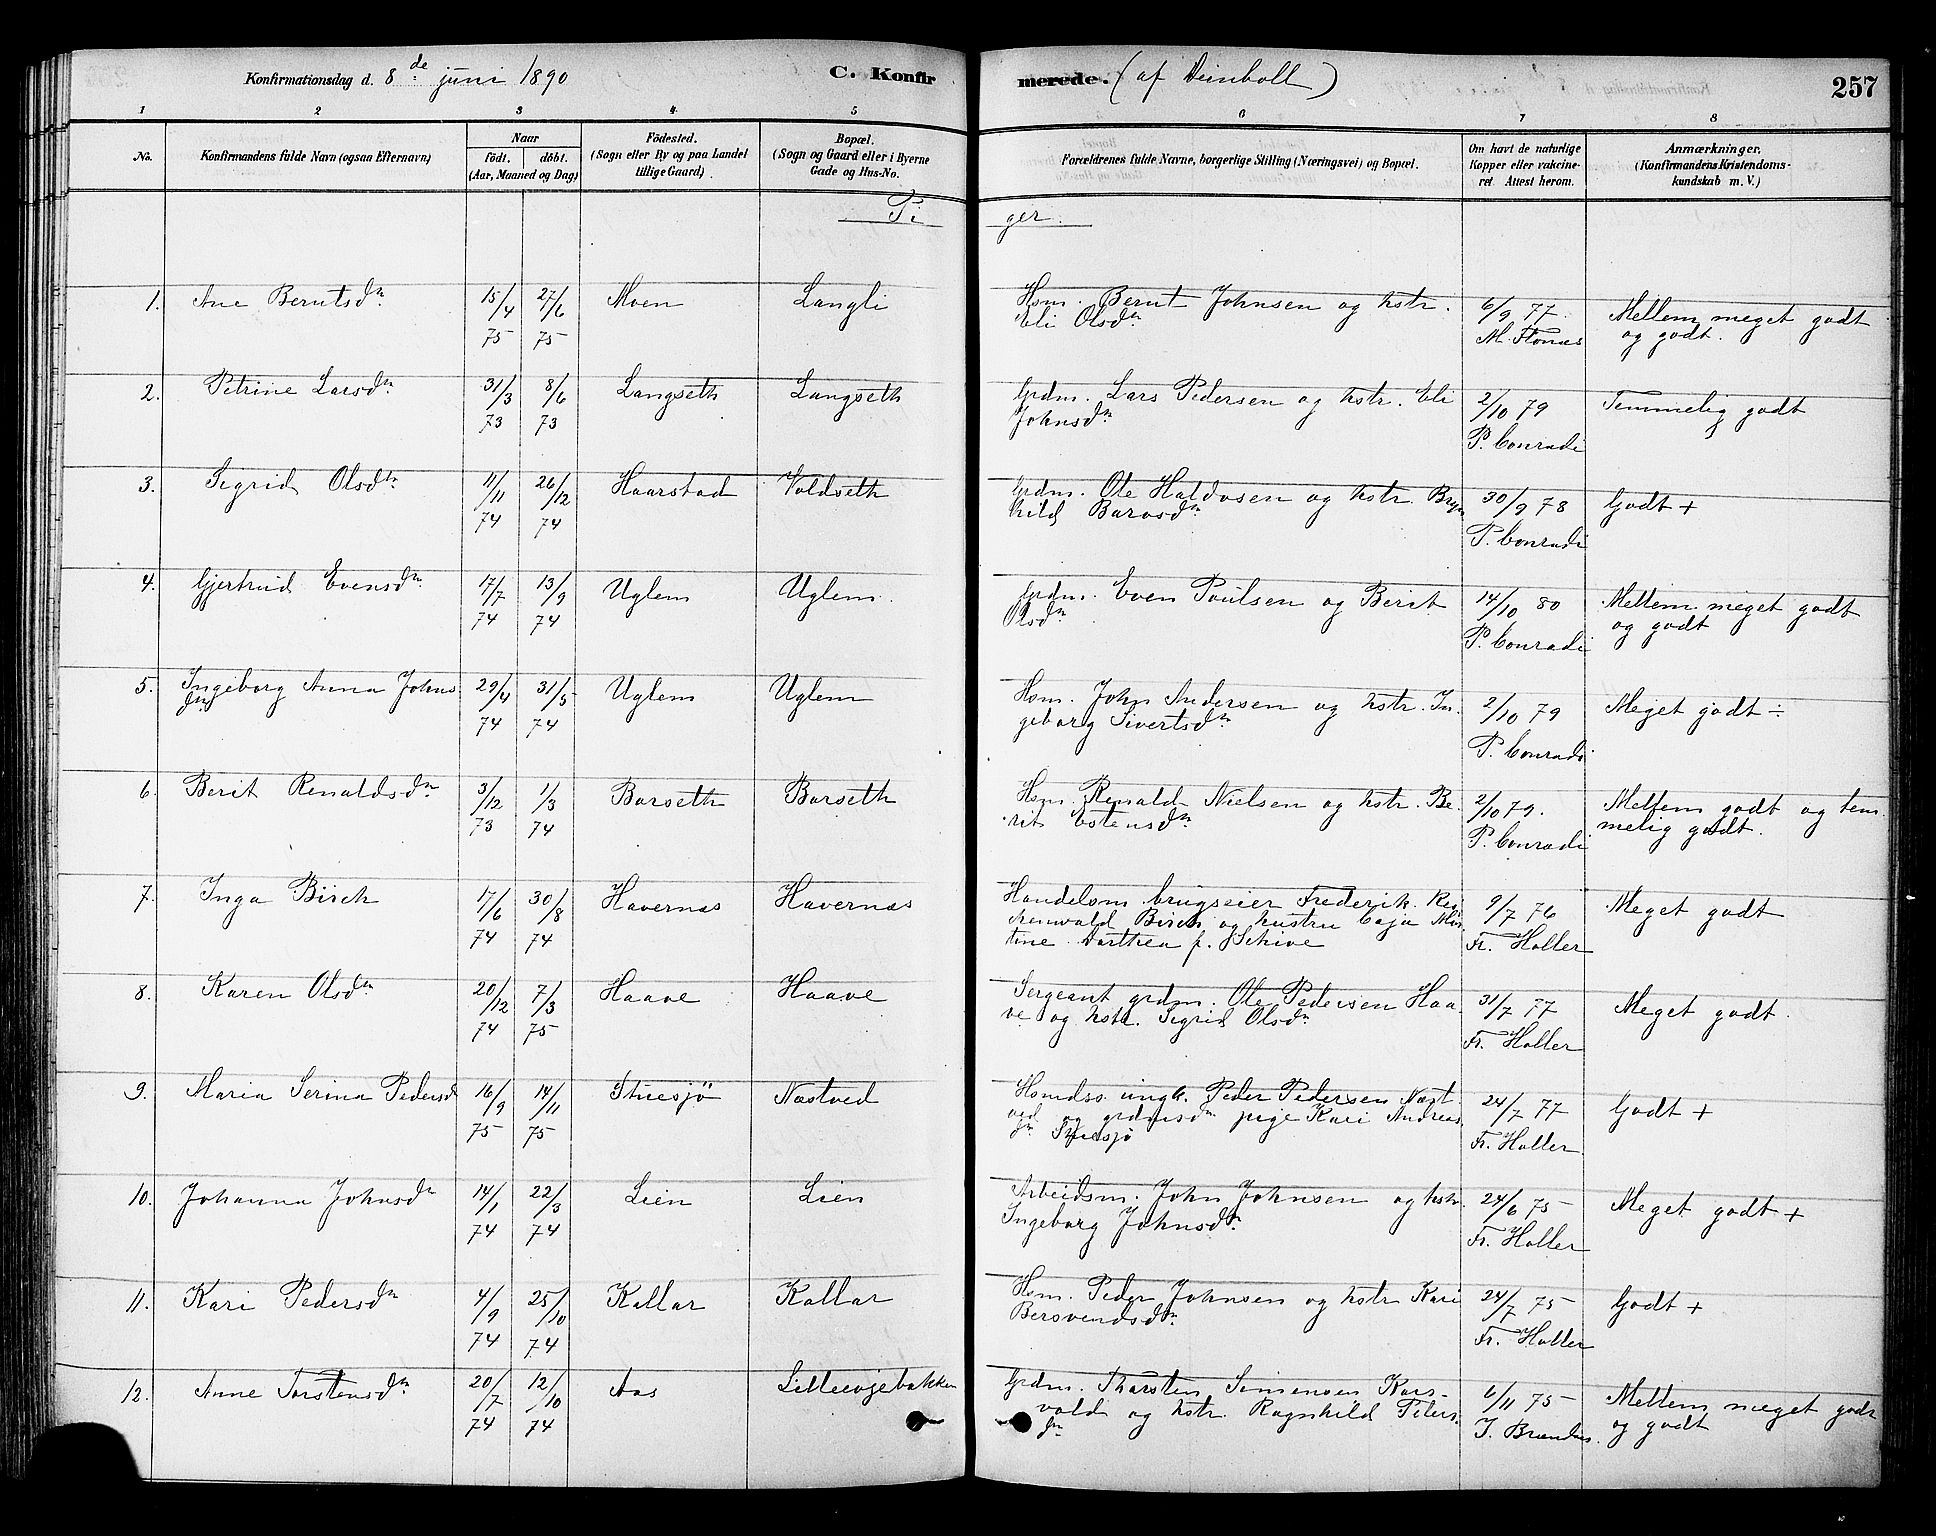 Konfirmationsdag d. 8de juni 1890 C. Konfirmerede. (af Deinboll) 257
1 2 3 4 5 6 7 8
No. Konfirmandens fulde Navn (ogsaa Efternavn) Naar födt. döbt. (Aar, Maaned og Dag) Födested. (Sogn eller By og paa Landet tillige Gaard) Bopæl. (Sogn og Gaard eller i Byerne Gade og Hus-No. Forældrenes fulde Navne, borgerlige Stilling (Næringsvei) og Bopæl. Om havt de naturlige Kopper eller vakcineret Attest herom. Anmærkninger. (Konfirmandens Kristendomskundskab m. V.)
Piger.
1. Ane Berntsdn 15/4 75 27/6 75 Moen Langli Hsm. Bernt Johnsen og kstr. Eli Olsdn 6/9 77 M. Flønæs Mellem meget godt og godt.
2. Petrine Larsdn 31/3 73 8/6 73 Langseth Langseth Grdm. Lars Pedersen og kstr. Eli Johnsdn 2/10 79 P. Conradi Temmelig godt
3. Sigrid Olsdn 11/11 74 26/12 74 Haarstad Voldseth Grdm. Ole Haldosen og kstr. Brynhild Barosdn 30/9 78 P. Conradi Godt +
4. Gjertrud Evensdn 17/7 74 13/9 74 Uglem Uglem. Grdm. Even Poulsen og Berit Olsdn 14/10 80 P. Conradi Mellem meget godt og godt
5. Ingeborg Anna Johnsdn 29/4 74 31/5 74 Uglem Uglem Hsm. John Andersen og kstr. Ingeborg Sivertsdn 2/10 79 P. Conradi Meget godt ÷
6. Berit Renaldsdn 3/12 73 1/3 74 Barseth Barseth Hsm. Renald Nielsen og kstr. Berit Estensdn 2/10 79. P. Conradi Mellem godt og temmelig godt.
7. Inga Birch 17/6 74 30/8 74 Havernæs Havernæs Handelsm. brugseier Frederik Reichenwald Birch og hustru Caja Martine Dorthea f. Schive 9/7 76 Fr. Holler Meget godt
8. Karen Olsdn 20/12 74 7/3 75 Haave Haave Sergeant grdm. Ole Pedersen Haave og kstr. Sigrid Olsdn 31/7 77 Fr. Holler Meget godt.
9. Maria Serina Pedersd 16/9 75 14/11 75 Stuesjö Næstved Hsmdss. ungk. Peder Pedersen Næstved og grdmsdn pige Kari Andreasdn Stuesjö 24/7 77 Fr. Holler Godt +
10. Johanna Johnsdn 14/1 74 22/3 74 Lien Lien Arbeidsm. John Johnsen og kstr. Ingeborg Johnsdn 24/6 75 Fr. Holler Meget godt +
11. Kari Pedersdn 4/9 74 25/10 74 Kallar Kallar Hsm. Peder Johnsen og kstr Kari Bersvendsdn 24/7 75 Fr. Holler Godt +
12. Anne Torstensdn 20/7 74 12/10 74 Aas Lilleevjebakken Grdm. Thorsten Simensen Karsvold og kstr. Ragnhild Petersdn 6/11 75 J. Brandes. Mellem meget godt og godt